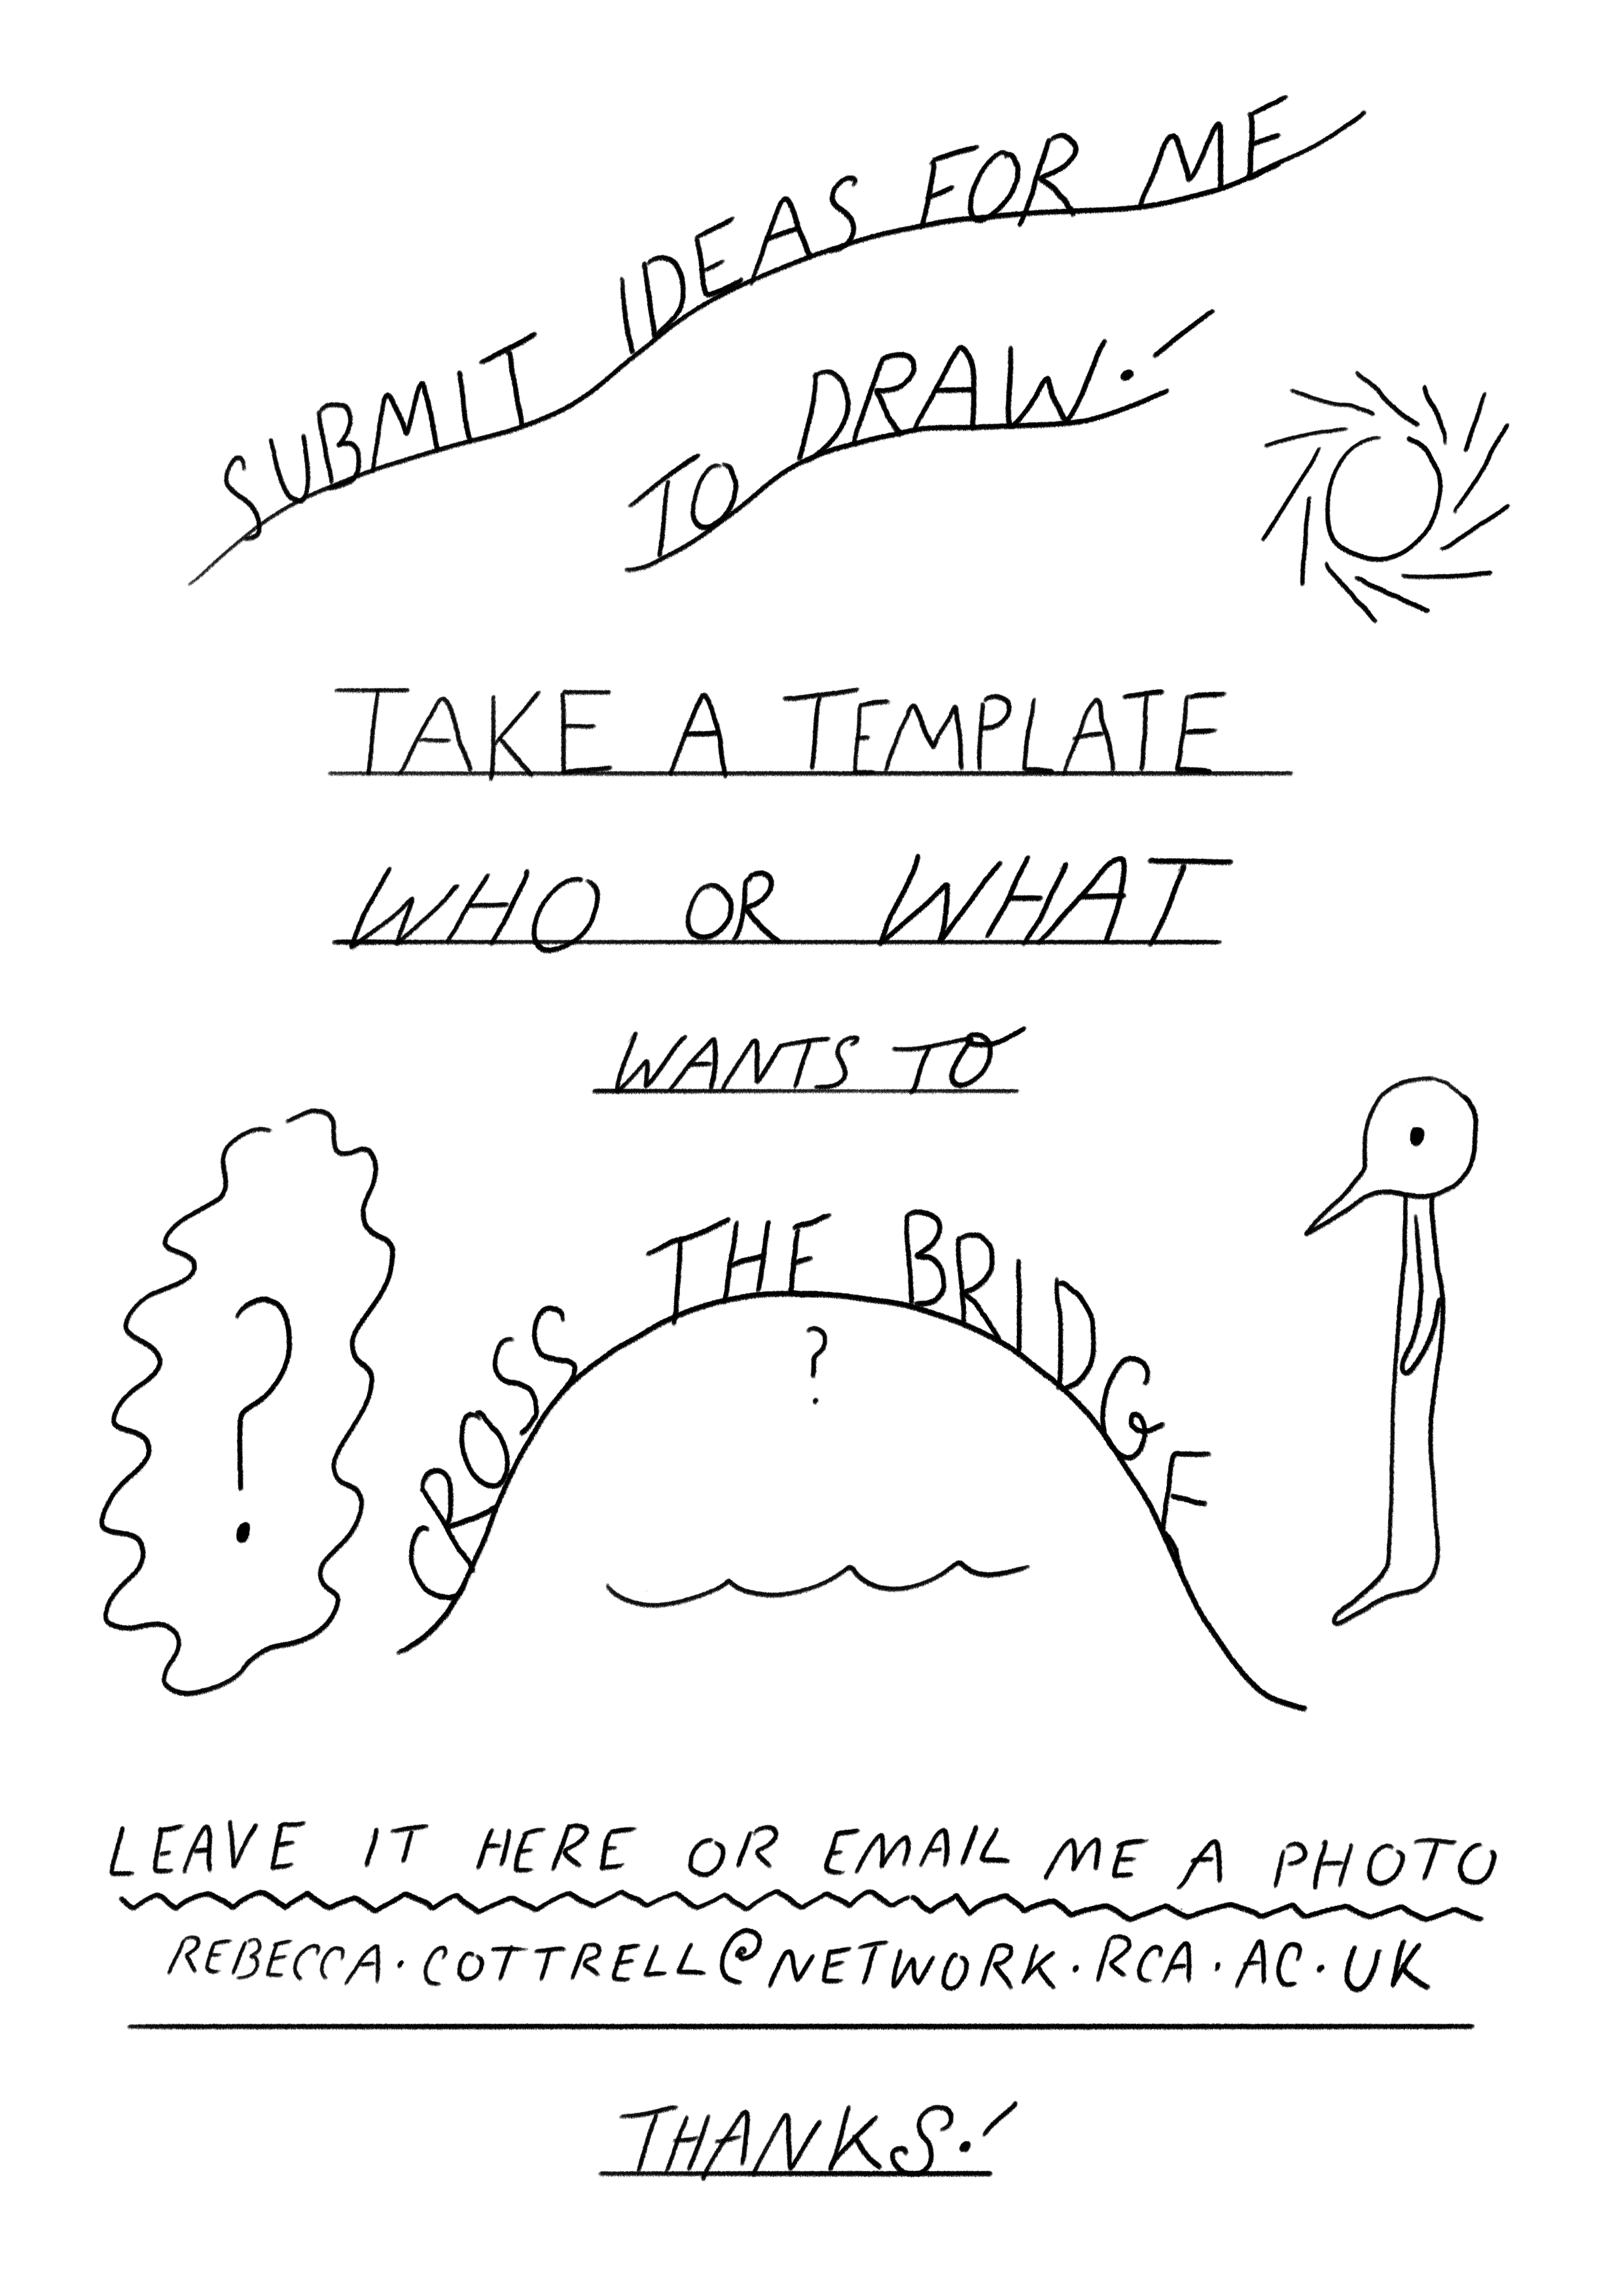 SUBMIT IDEAS FOR ME
TO DRAW!
TAKE A TEMPLATE
WHO OR WHAT
WANTS TO
CROSS THE BRIDGE
?
?
LEAVE IT HERE OR EMAIL ME A PHOTO
REBECCA.COTTRELL@NETWORK.RCA.AC.UK
THANKS!